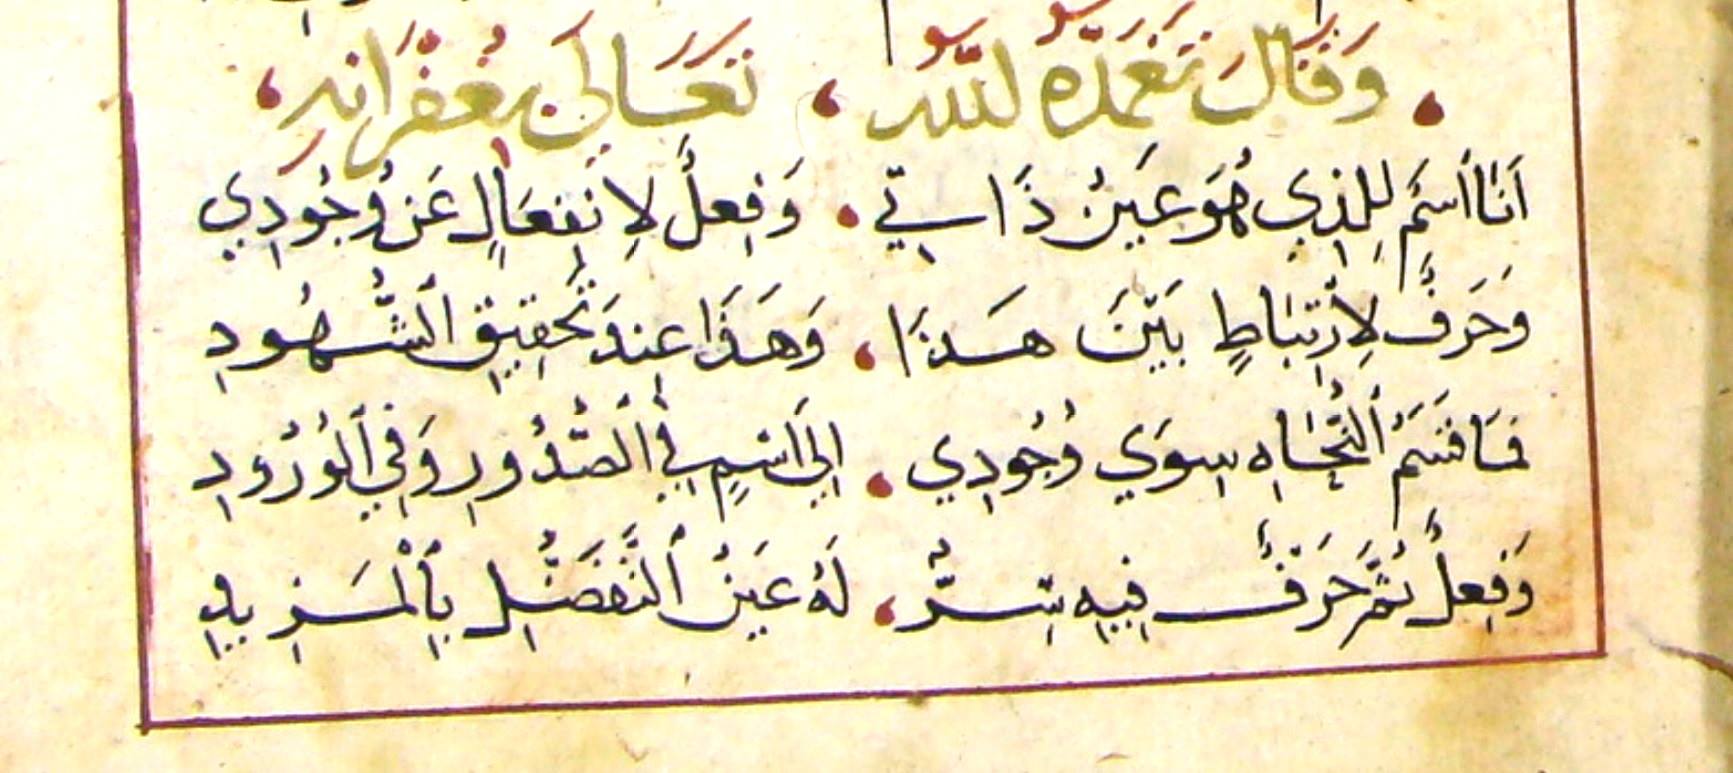 وَقَالَ تَغَمَّدَهُ اللّٰهُ ، تَعَالَى بِغُفْرَانِهِ ،
اَنَا اَسْمٌ لِلَّذِي هُوَ عَيْنُ ذَاتِي . وَفِعْلٌ لِانْفِعَالٍ عَنْ وُجُودِي
وَحَرْفٌ لِارْتِبَاطٍ بَيْنَ هَذَا . وَهَذَا عِنْدَ تَحْقِيقِ الشُّهُودِ
فَمَا قَسَمُ النُّحَاهِ سِوَي وُجُودِي . اِلَي اَسْمٍ فِي الصُّدُورِ وَفِي الْوُرُودِ
وَفِعْلٌ ثُمَّ حَرْفٌ فِيهِ سِرٌّ . لَهُ عَيْنُ التَّفَضُّلِ بِالْمَزِيدِ